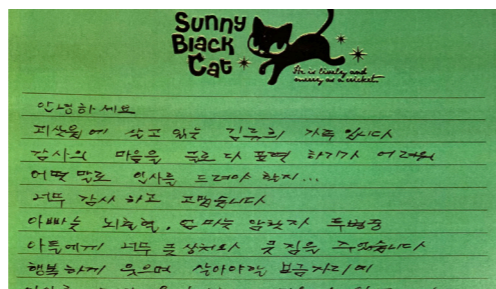 Sunny
Black
Cat
He is lively and
merry as a cricket.
안녕하세요
괴산읍에 살고 있는 김류희 가족 입니다
감사의 마음을 글로 다 표현 하기가 어려워
어떤 말로 인사를 드려야 할지...
너무 감사 하고 고맙습니다
아빠는 뇌출혈, 엄마는 암환자 투병중
아들에게 너무 큰 상처와 큰 짐을 주었습니다
행복하게 웃으며 살아야할 보금자리에